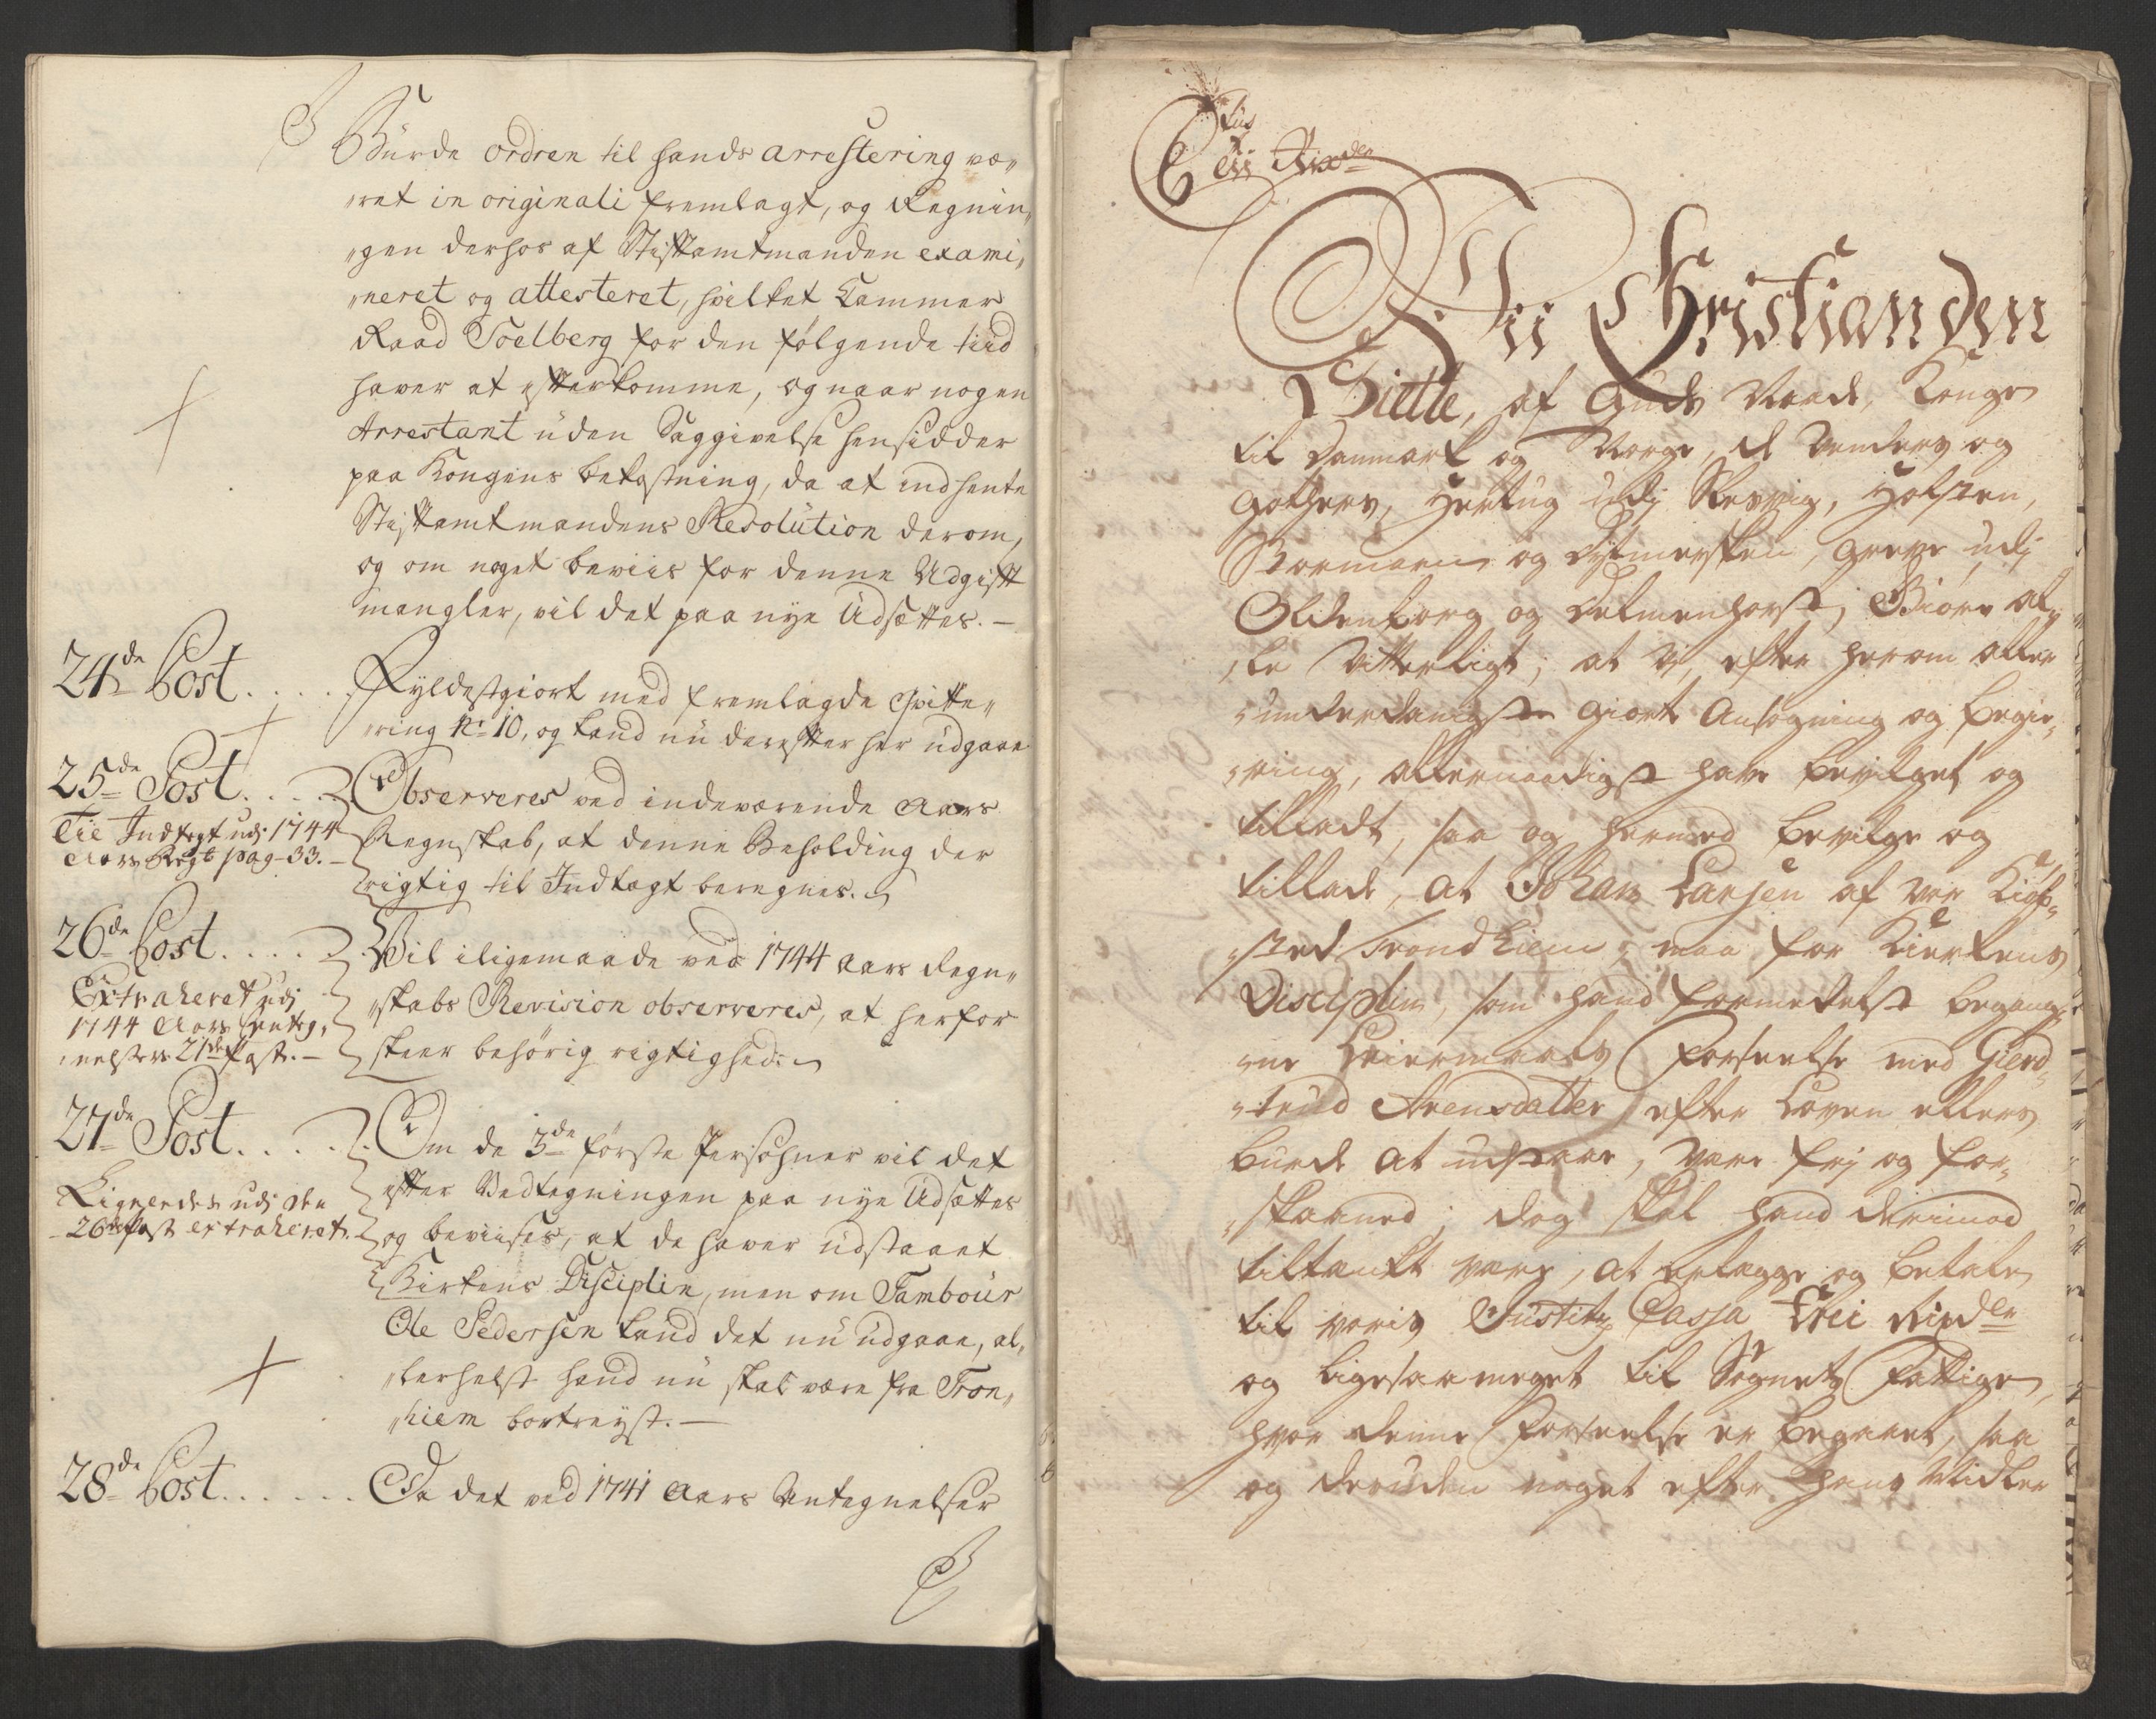 Burde ordren til hands arrestering væ„
„ret in originali fremlagt, og Regnin„
„gen derhos af Stiftamtmanden exami„
„neret og attesteret, hvilket Cammer
Raad Soelberg for den følgende tiid
haver at efterkomme, og naar nogen
Arrestant uden Saggivelse hensidder
paa Kongens bekostning, da at indhente
Stiftamtmandens Resolution derom,
og om noget beviis for denne Udgift
mangler, vil det paa nye Udsættes.—
24de Post....
Fyldestgiort med fremlagde Qvitte„
„ring No 10, og kand nu derefter her udgaae
25de Post....
Til Indtegt udj 1744
Aars Regt pag-33.—
Observeres ved indeværende Aars
Regnskab, at denne Beholding der
rigtig til Indtægt beregnes.
26de Post....
Extraheret udj
1744 Aars Anteg„
„nelsers 21de Post.—
Vil iligemaade ved 1744 Aars Regn„
„skabs Revision observeres, at herfor
skeer behørig rigtighed.
27de Post....
Ligeledes udj den
26de Post extraheret.
Om de 3de første Persohner vil det
efter Vedtegningen paa nye Udsættes
og beviises, at de haver udstaaet
Kirkens Disciplin, men om Tambour
Ole Pedersen kand det nu udgaae, al„
„lerhelst hand nu skal være fra Tron„
„hiem bortreyst.—
28de Post......
Da det ved 1741 Aars Antegnelser
Rixdr
Vii Christian den
Siette, af Guds Naade, Konge
til Danmark og Norge, de Venders og
Gothers, Hertug udj Slesvig, Holsten,
Stormarn og Dytmersken, Greve udj
Oldenborg og Delmenhorst, Giøre al„
„le Vitterligt, at Vi, efter herom aller
„underdanigste giorte Ansøgning og begie„
„ring, allernaadigst have bevilget og
tilladt, saa og hermed bevilge og
tillade, at Johan Larsen af vor Kiøb„
„sted Trondhiem, maa for Kierkens
Disciplin, som hand formedelst begang„
„ne Leiermaals Forseelse med Gierd„
„trud Arensdatter, efter Loven ellers
burde at udstaae, være frj og for„
„skaaned; dog skal hand derimod
tiltænkt være, at erlægge og betale
til voris Justitz Cassa Trei Rixdr
og ligesaa meget til Sognets Fattige,
hvor denne Forseelse er begaaet, saa
og desuden noget efter hans Midler